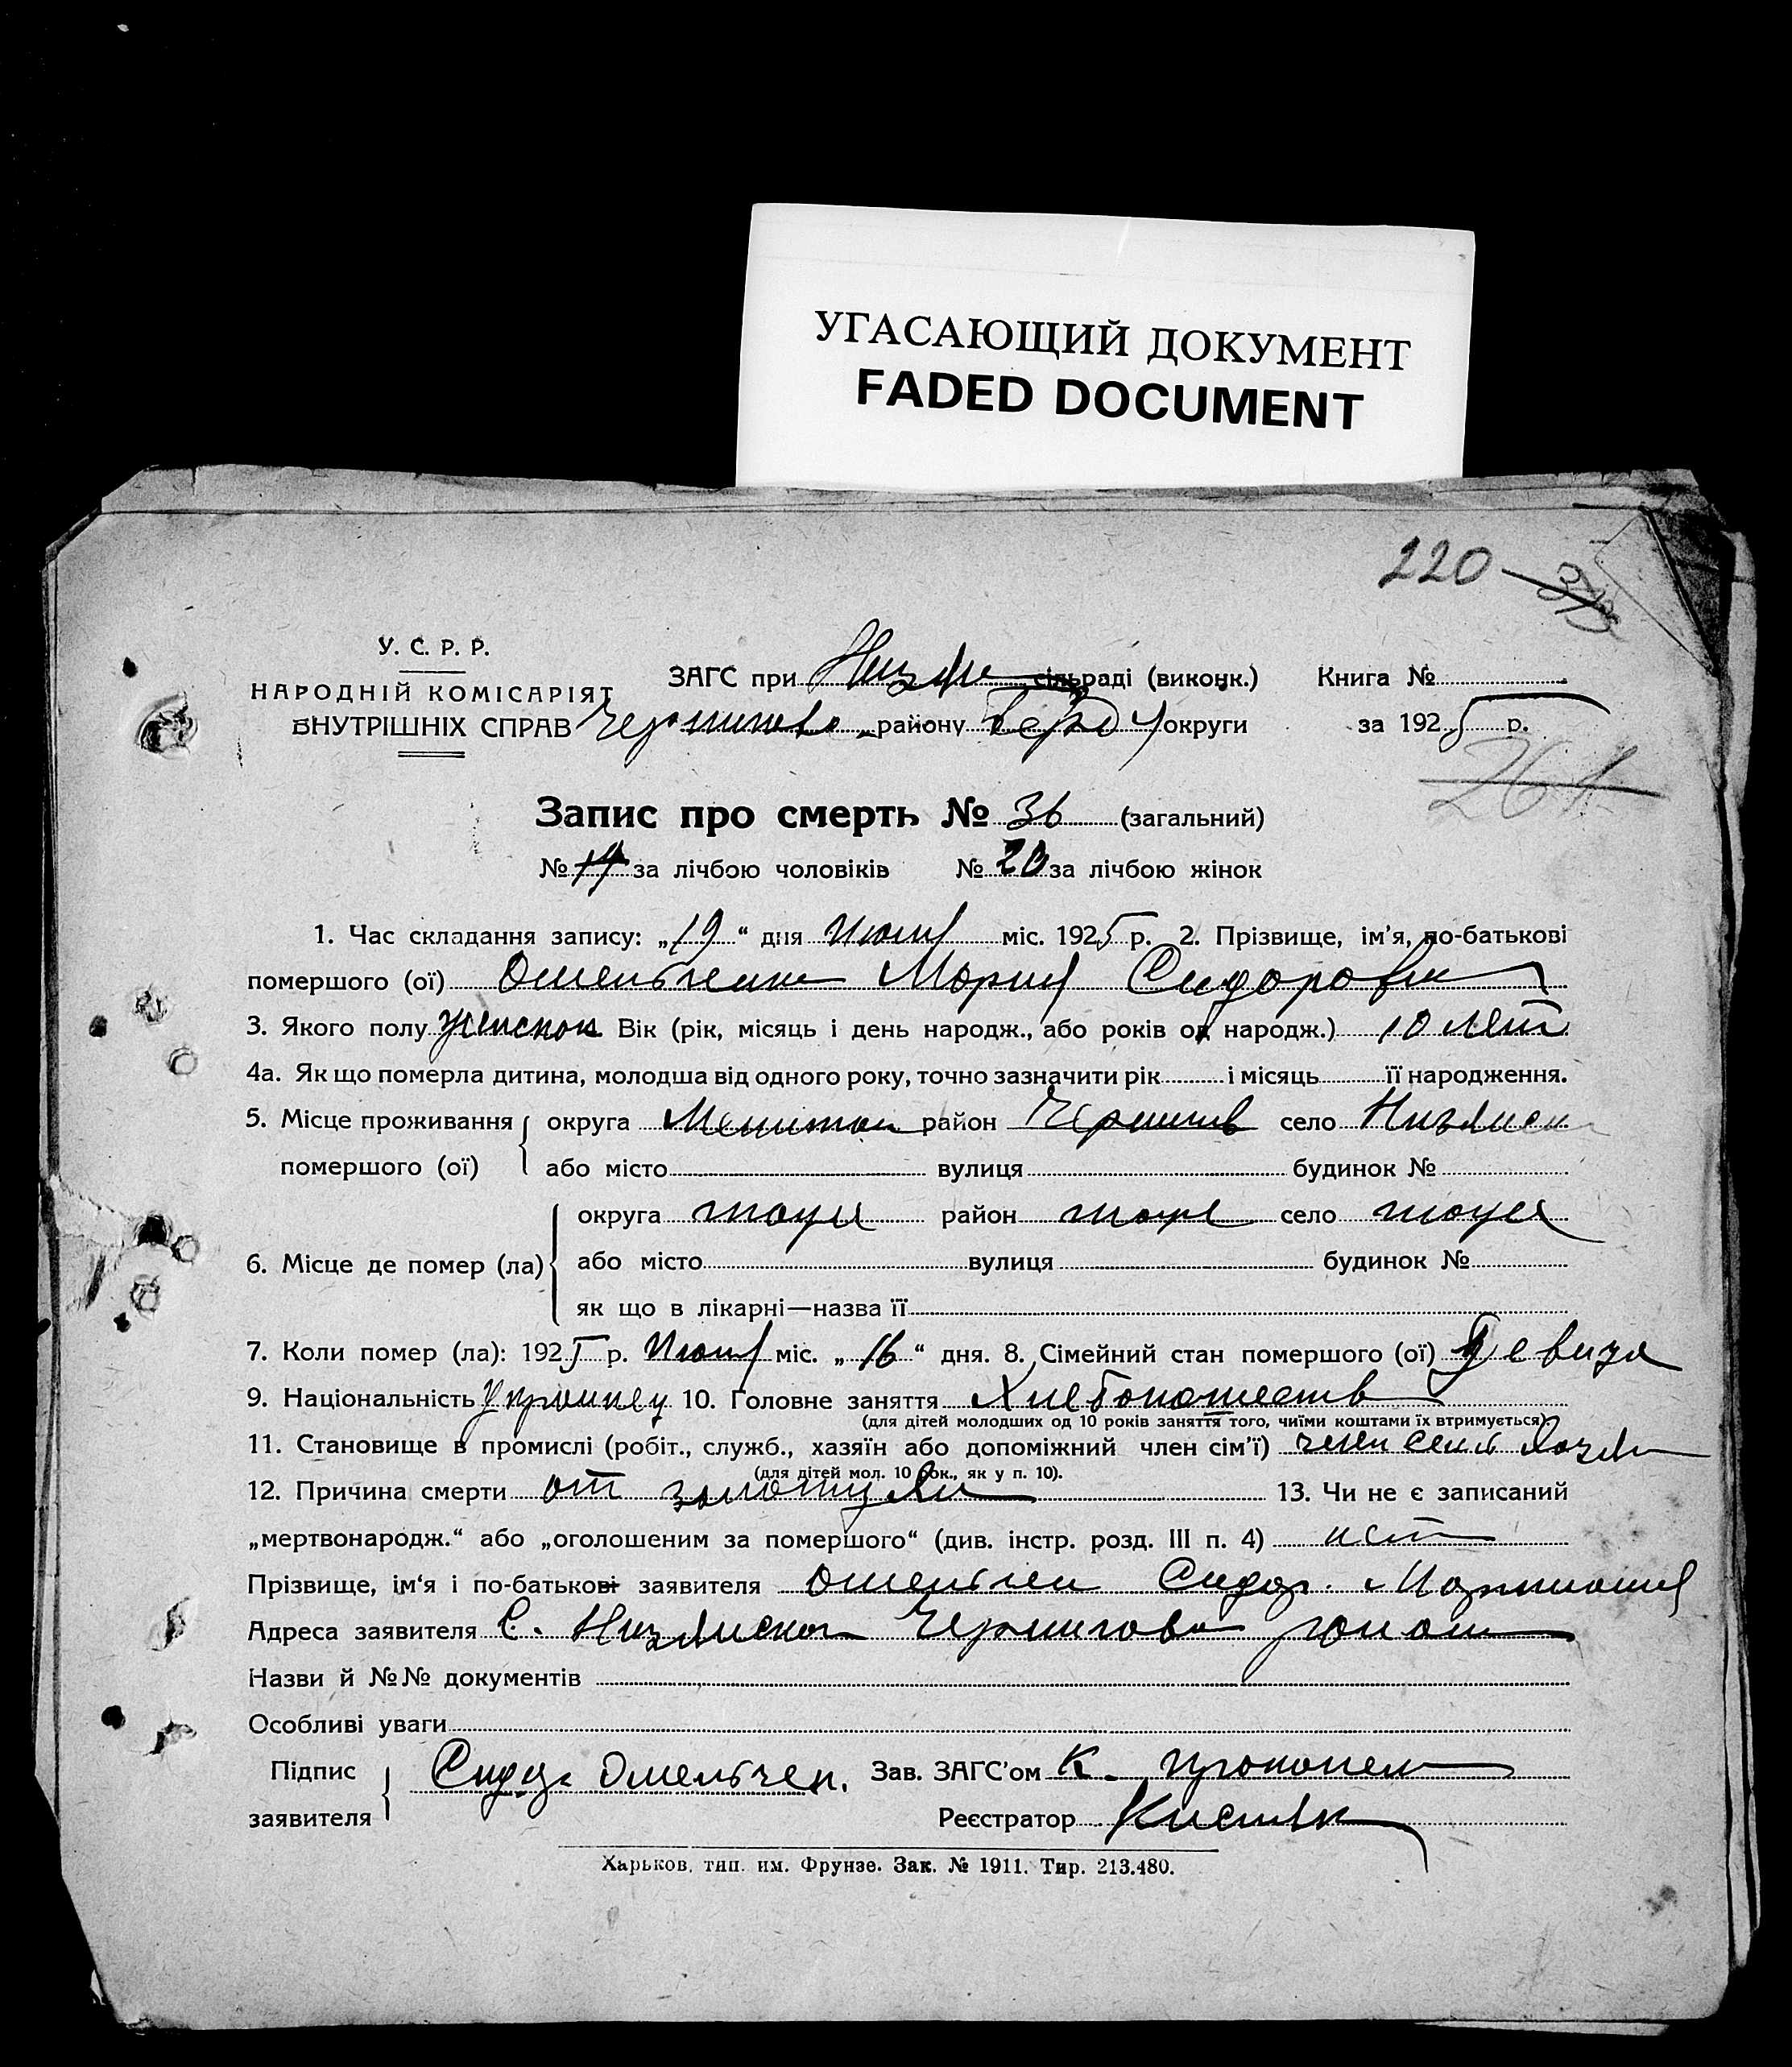 УГАСАЮЩИЙ ДОКУМЕНТ
FADED DOCUMENT
220
У. С. Р. Р.
НАРОДНІЙ КОМІСАРІЯТ
ВНУТРІШНІХ СПРАВ
ЗАГС при сільраді (виконк.) Книга №
району округи за 1925 р.
261
Запис про смерть № 36 (загальний)
№ за лічбою чоловіків № 20 за лічбою жінок
1. Час складання запису: „19“ дня Июля міс. 1925 р. 2. Прізвище, ім'я, по-батькові
помершого (ої) Омельченко Мария Сидоровн
3. Якого полу женскоп Вік (рік, місяць і день народж., або років од народж.) 10 лет
4а. Як що померла дитина, молодша від одного року, точно зазначити рік і місяць її народження.
5. Місце проживання помершого (ої) округа Мелитоп район Чернигов село Низянск
або місто вулиця будинок №
6. Місце де помер (ла) округа тоже район тоже село тоже
або місто вулиця будинок №
як що в лікарні—назва її
7. Коли помер (ла): 1925 р. Июля міс. „16“ дня. 8. Сімейний стан помершого (ої) девица
9. Національність Украинец 10. Головне заняття Хлебопашеств
(для дітей молодших од 10 років заняття того, чиїми коштами їх втримується).
11. Становище в промислі (робіт., служб., хазяїн або допоміжний член сім'ї) член семьи
(для дітей мол. 10 рок., як у п. 10).
12. Причина смерти от золотухи 13. Чи не є записаний
„мертвонародж.“ або „оголошеним за помершого“ (див. інстр. розд. III п. 4) нет
Прізвище, ім'я і по-батькові заявителя Омельчен Сидор
Адреса заявителя С. Чернигово району
Назви й №№ документів
Особливі уваги
Підпис заявителя Сидор Омельчен. Зав. ЗАГС'ом К.
Реєстратор
Харьков, тип. им. Фрунзе. Зак. № 1911. Тир. 213.480.